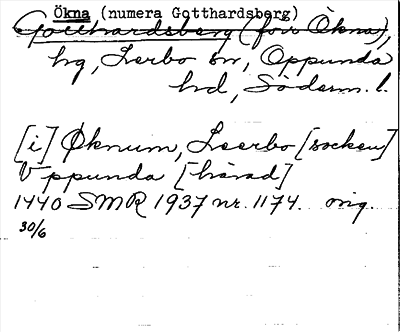 Ökna (numera Gotthardsberg)
Gotthardsberg (förr Ökna),
hg, Lerbo sn, Oppunda
hd, Söderm. l.
[i] Øknum, Leerbo [socken]
Vppunda [härad]
1440 SMR 1937 nr. 1174. orig.
30/6